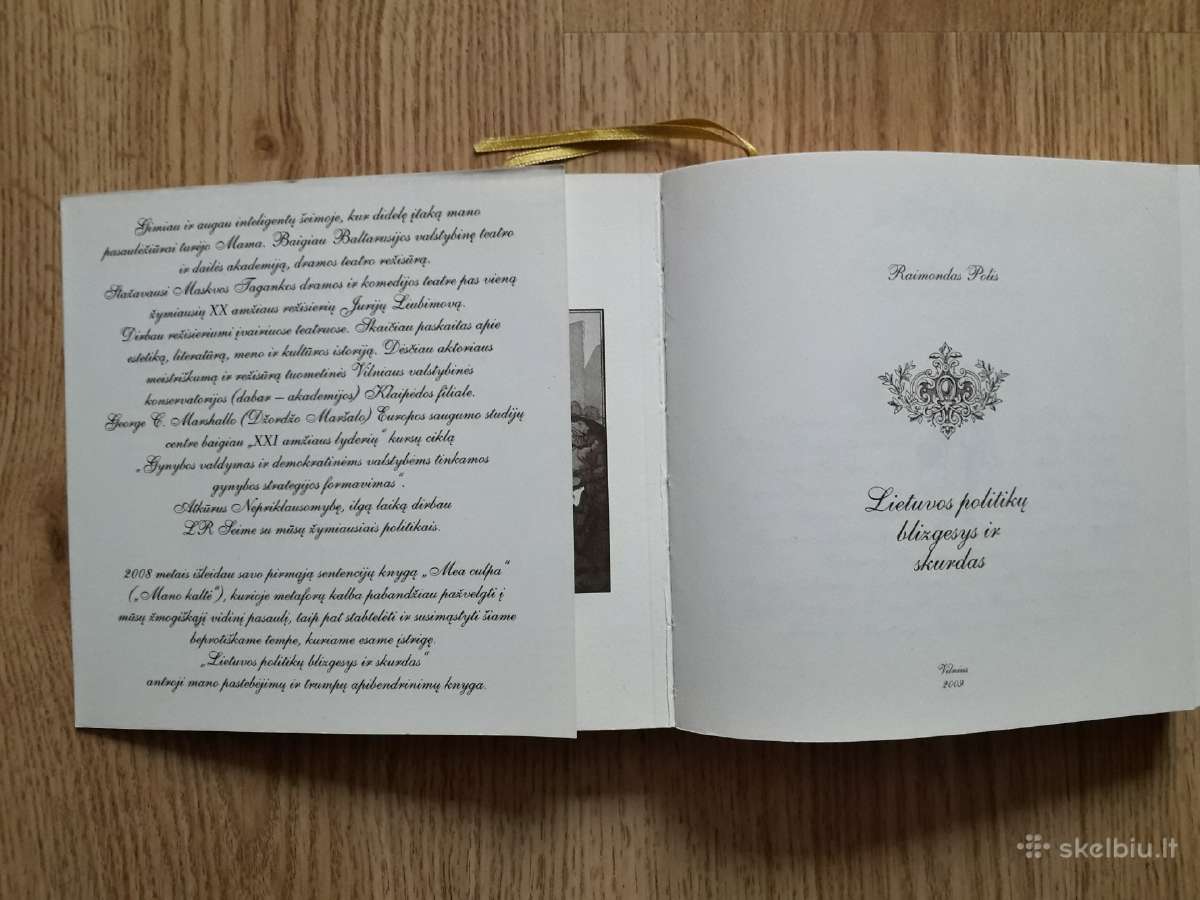 Gimiau ir augau inteligentų šeimoje, kur didelę įtaką mano
pasaulėžiūrai turėjo Mama. Baigiau Baltarusijos valstybinę teatro
ir dailės akademiją, dramos teatro režisūrą.
Stažavausi Maskvos Tagankos dramos ir komedijos teatre pas vieną
žymiausių XX amžiaus režisierių Jurijų Liubimovą.
Dirbau režisieriumi įvairiuose teatruose. Skaičiau paskaitas apie
estetiką, literatūrą, meno ir kultūros istoriją. Dėsčiau aktoriaus
meistriškumą ir režisūrą tuometinės Vilniaus valstybinės
konservatorijos (dabar – akademijos) Klaipėdos filiale.
George C. Marshallo (Džordžo Maršalo) Europos saugumo studijų
centre baigiau „XXI amžiaus lyderių“ kursų ciklą
„Gynybos valdymas ir demokratinėms valstybėms tinkamos
gynybos strategijos formavimas“.
Atkūrus Nepriklausomybę, ilgą laiką dirbau
LR Seime su mūsų žymiausiais politikais.
2008 metais išleidau savo pirmąją sentencijų knygą „Mea culpa“
(„Mano kaltė“), kurioje metaforų kalba pabandžiau pažvelgti į
mūsų žmogiškąjį vidinį pasaulį, taip pat stabtelėti ir susimąstyti šiame
beprotiškame tempe, kuriame esame įstrigę.
„Lietuvos politikų blizgesys ir skurdas“
antroji mano pastebėjimų ir trumpų apibendrinimų knyga.
Raimondas Polis
Lietuvos politikų
blizgesys ir
skurdas
Vilnius
2009
skelbiu.lt